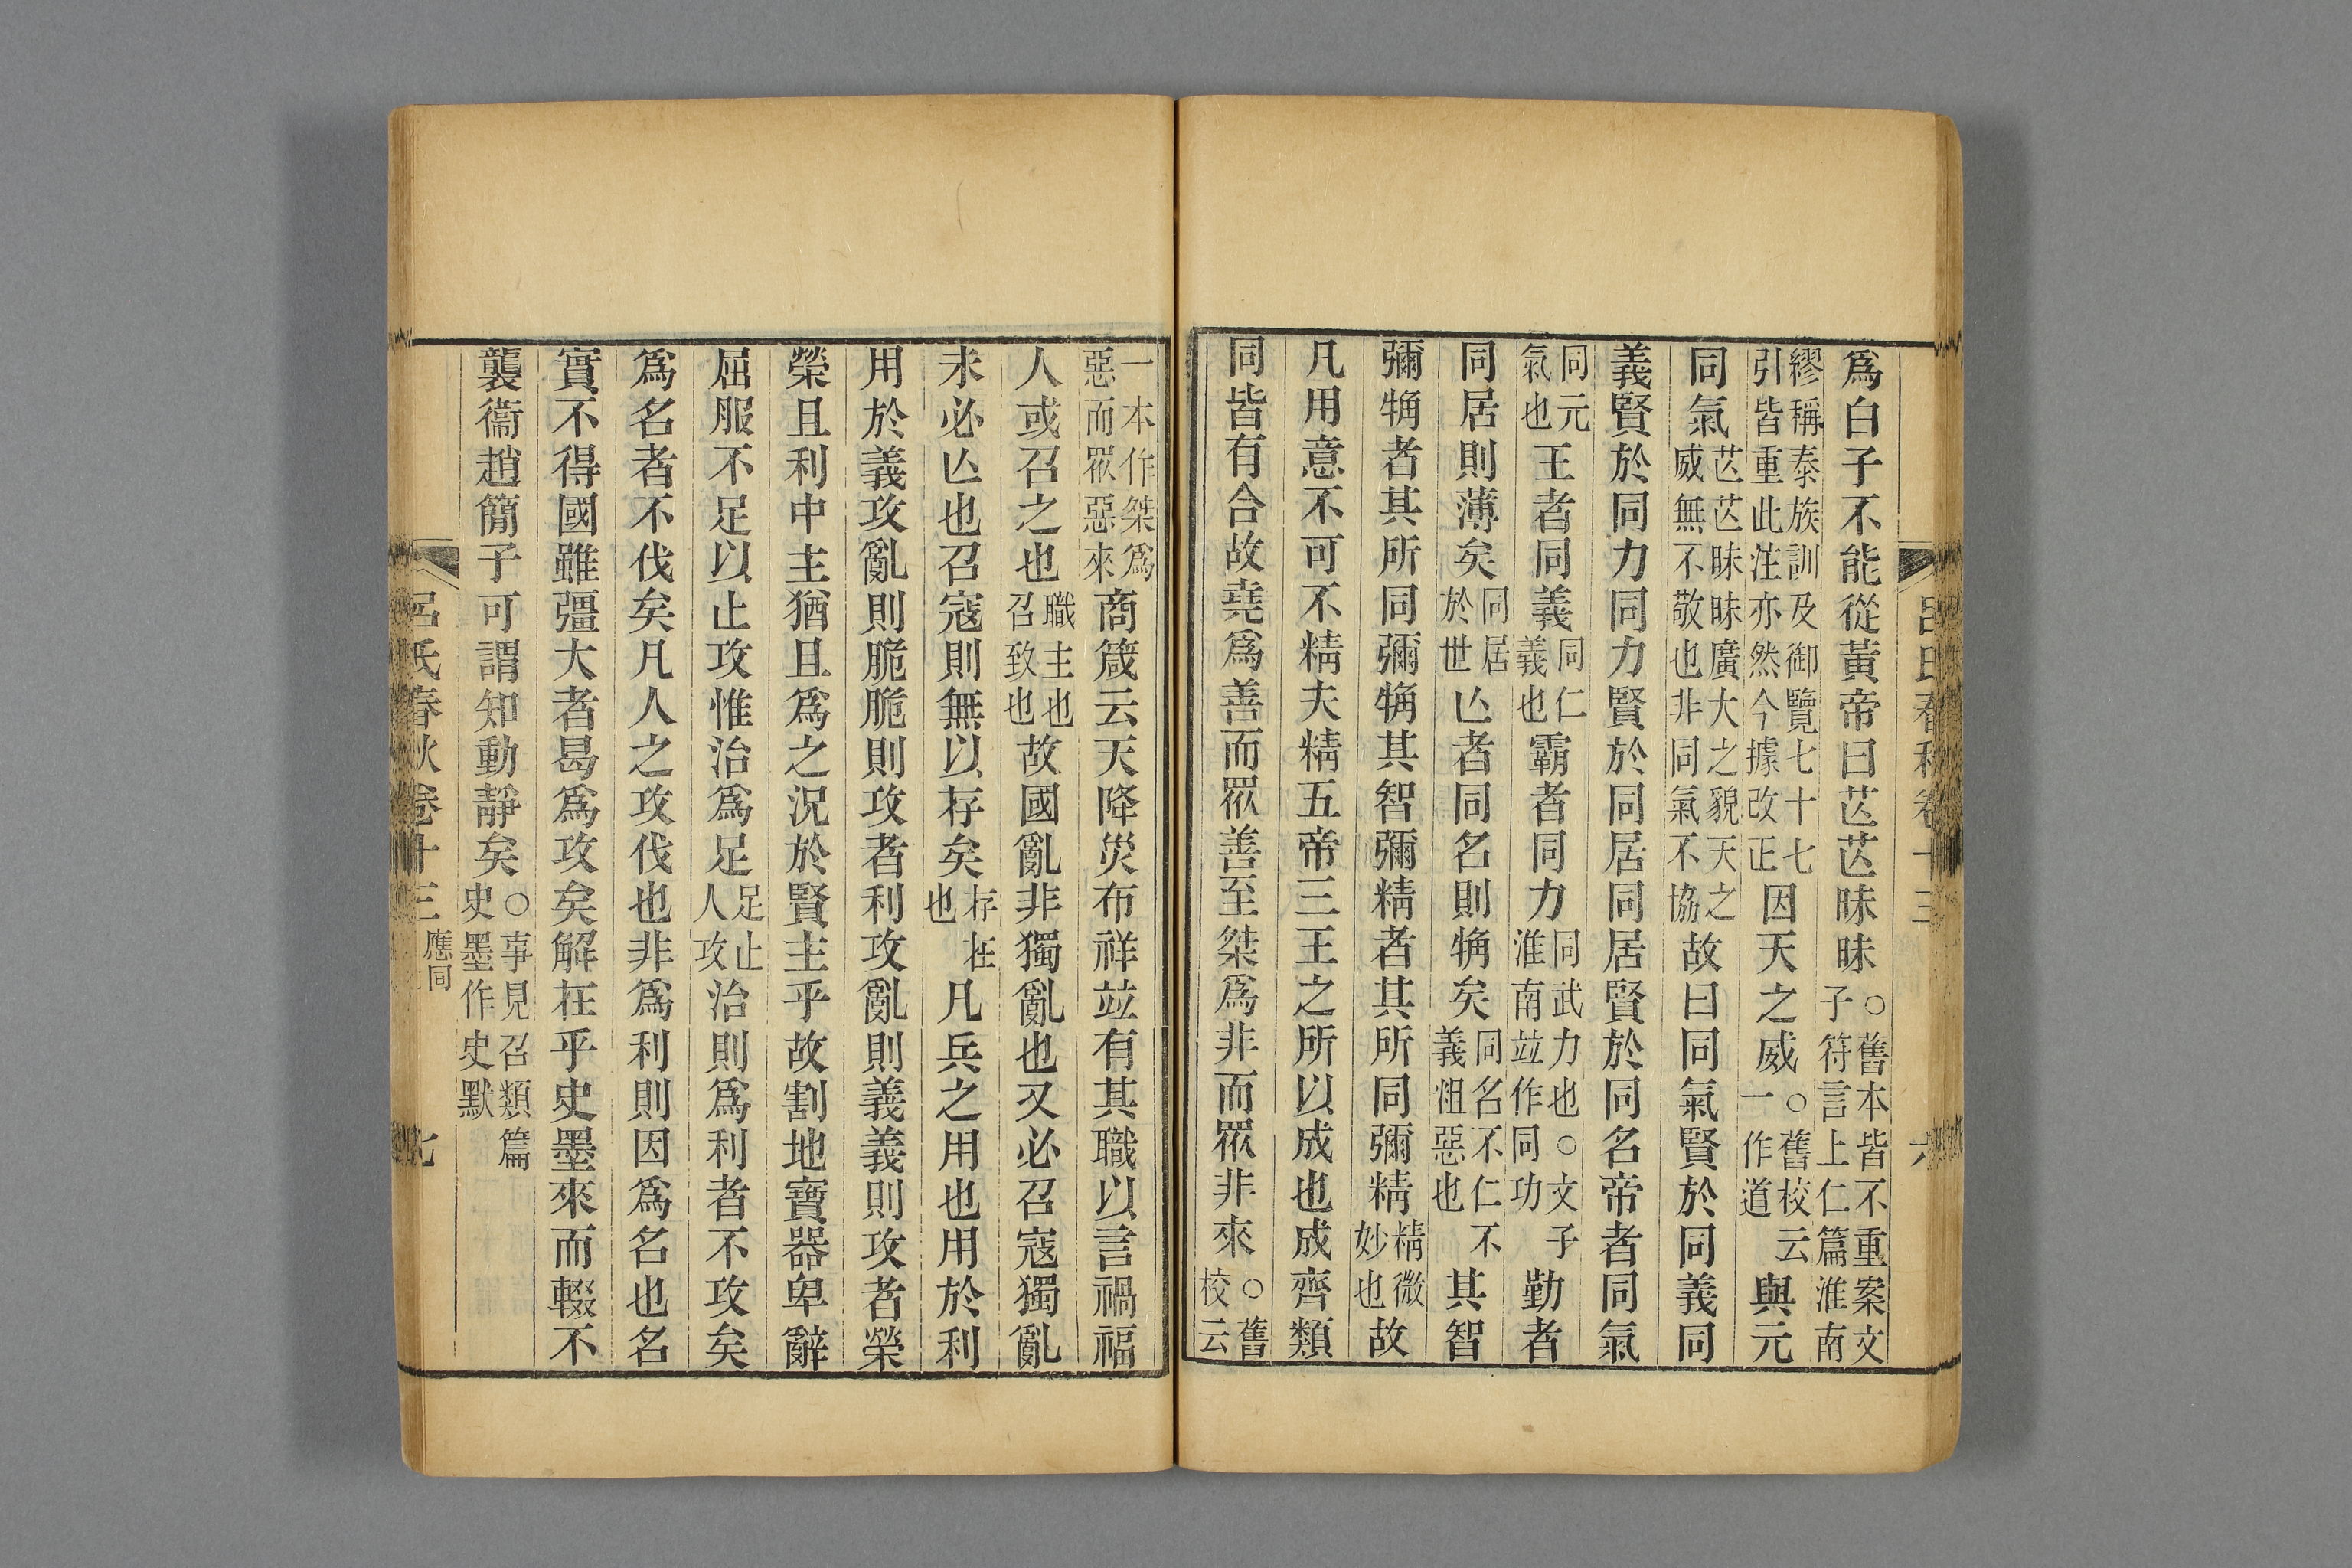 呂氏春秋卷十三　六
爲白子不能從黃帝曰芒芒昧昧○舊本皆不重案文子符言上仁篇淮南
繆稱泰族訓及御覽七十七引皆重此注亦然今據改正因天之威○舊校云一作道與元
同氣芒芒昧昧廣大之貌天之威無不敬也非同氣不協故曰同氣賢於同義同
義賢於同力同力賢於同居同居賢於同名帝者同氣
同元氣也王者同義同仁義也霸者同力同武力也○文子淮南竝作同功勤者
同居則薄矣同居於世亾者同名則觕矣同名不仁不義粗惡也其智
彌觕者其所同彌觕其智彌精者其所同彌精精微妙也故
凡用意不可不精夫精五帝三王之所以成也成齊類
同皆有合故堯爲善而眾善至桀爲非而眾非來○舊校云
一本作桀爲惡而眾惡來商箴云天降災布祥竝有其職以言禍福
人或召之也職主也召致也故國亂非獨亂也又必召寇獨亂
未必亾也召寇則無以存矣存在也凡兵之用也用於利
用於義攻亂則脆脆則攻者利攻亂則義義則攻者榮
榮且利中主猶且爲之況於賢主乎故割地寶器卑辭
屈服不足以止攻惟治爲足足止人攻治則爲利者不攻矣
爲名者不伐矣凡人之攻伐也非爲利則因爲名也名
實不得國雖彊大者曷爲攻矣解在乎史墨來而輟不
襲衞趙簡子可謂知動靜矣○事見召類篇史墨作史默
呂氏春秋卷十三　應同　七